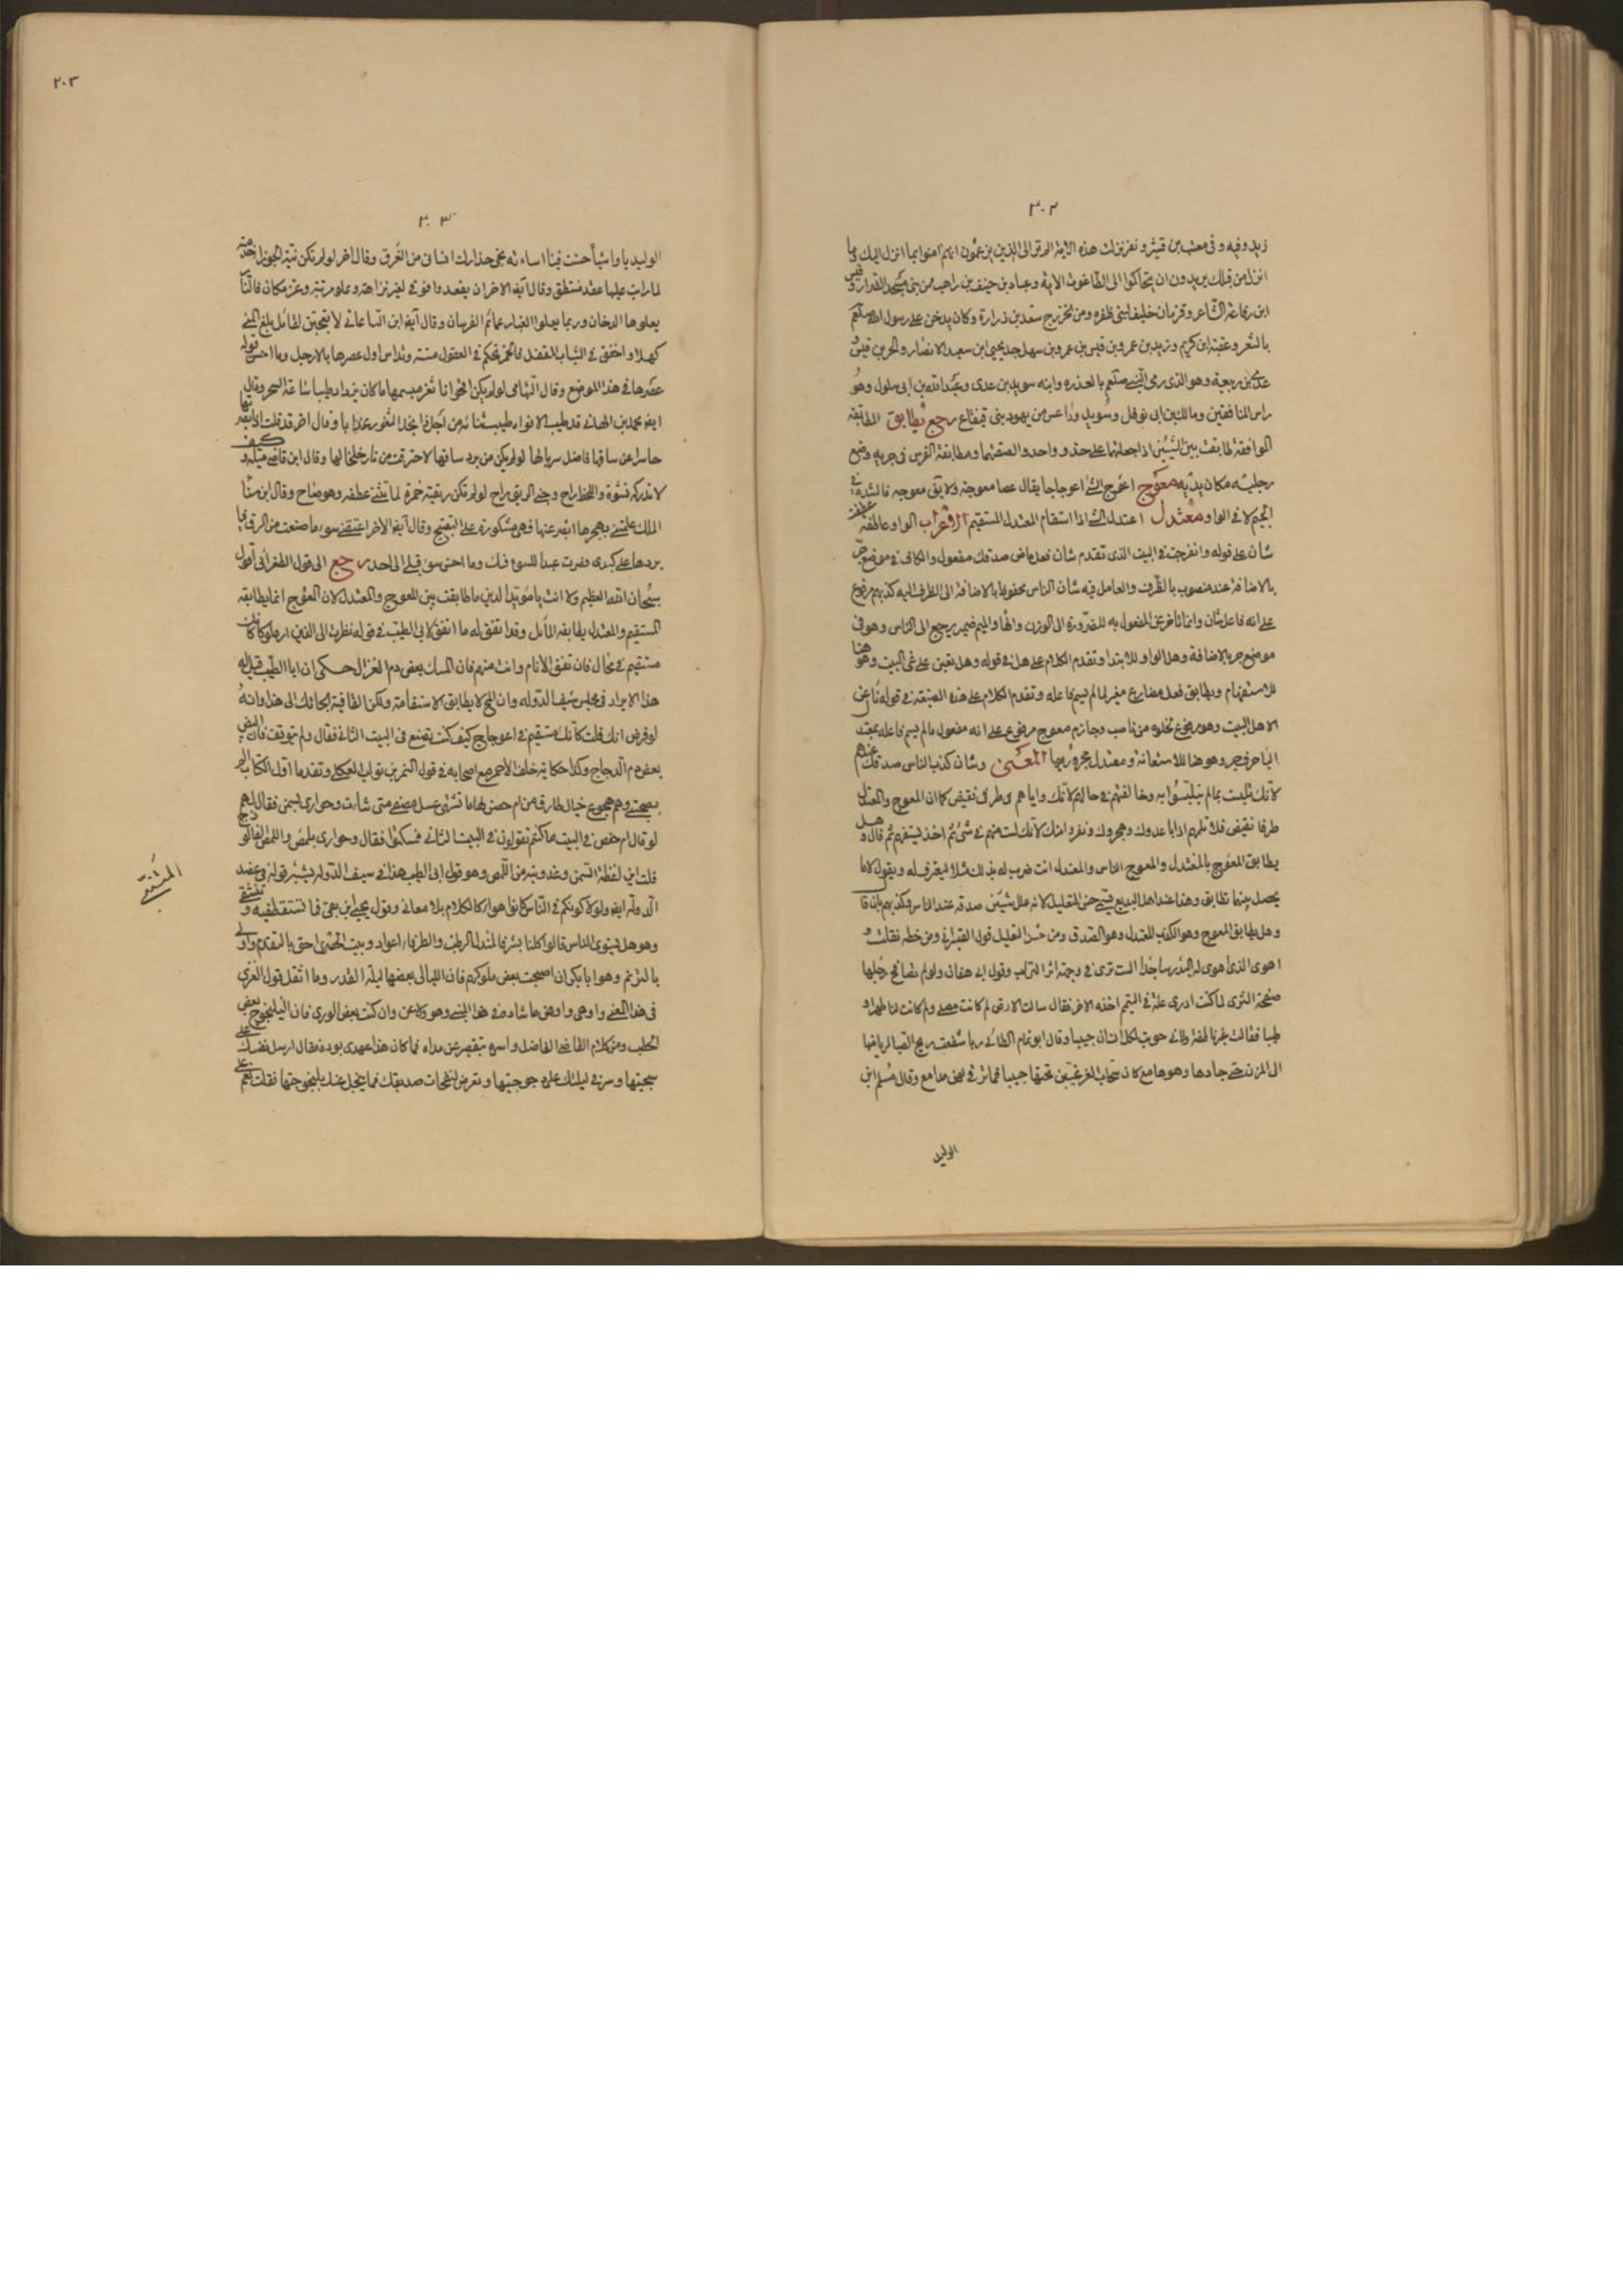 ٣٠٢
زيد وفيه وفى معتب بن قشير ونفر نزلت هذه الآية الم تر الى الذين يزعمون انهم امنوا بما انزل اليك وما
انزل من قبلك يريدون ان يتحاكموا الى الطاغوت الآية وعباد بن حنيف بن راهب من بنى
ابن رفاعة الشاعر وقزمان حليف لبنى ظفره ومن الخزرج سعد بن زرارة وكان يدخن على رسول الله صلعم
بالشعر وعقبة ابن كريم وزيد بن عمرو بن قيس بن عمرو بن سهل جد يحيى ابن سعيد الانصار والحر بن قيس
عدى بن ربيعة وهو الذى رمى النبى صلعم بالعذره وابنه سويد بن عدى وعبد الله بن ابى سلول وهو
راس المنافقين ومالك بن ابى نوفل وسويد وداعس من يهود بنى قينقاع رجع يطابق المطابقه
الموافقة طابقت بين الشيئين اذا جعلتهما على حذو واحد والصقتهما ومطابقة الفرس فى جريه وضع
رجليه مكان يديه معوج اعوج الشئ اعوجاجا يقال عصا معوجة ولا يق معوجه فالشدة فى
الجيم لا فى الواو معتدل اعتدل الشئ اذا استقام المعتدل المستقيم الاعراب الواو عاطفه
شان على قوله وانفرجت فى البيت الذى تقدم شان فعل ماض صدقك مفعول والكاف فى موضع جر
بالاضافة عند منصوب بالظرف والعامل فيه شان الناس مخفوض بالاضافة الى الظرف اليه كذبهم مرفوع
على انه فاعل شان وانما تاخر عن المفعول به للضرورة الى الوزن والها والميم ضمير يرجع الى الناس وهو فى
موضع جر بالاضافة وهل الواو للابتدا وتقدم الكلام على هل فى قوله وهل تعين على غى البيت وهو هنا
للاستفهام ويطابق فعل مضارع مغير لما لم يسم فاعله وتقدم الكلام على هذه الصيغة فى قوله ناء عن
الاهل البيت وهو مرفوع لخلوه من ناصب وجازم معوج مرفوع على انه مفعول ما لم يسم فاعله بمعتدل
البا حرف جر وهو هنا للاستعانة ومعتدل مجرور بها المعنى وشان كذب الناس صدقك عندهم
لانك تلبست بما لم يتلبسوا به وخالفتهم فى حالهم لانك واياهم فى طرفى نقيض كما ان المعوج والمعتدل
طرفا نقيض فلا تلمهم اذا باعدوك وهجروك ونفروا منك لانك لست منهم فى شئ ثم اخذ يستفهم ثم قال وهل
يطابق المعوج بالمعتدل والمعوج الناس والمعتدل انت ضرب له بذلك مثلا ليعترف له ويقول لا ما
يحصل بينهما تطابق وهذا عند اهل البديع يسمى حسن التعليل لانه علل شين صدقه عند الناس وكذبهم بان قال
وهل يطابق المعوج وهو الكذب المعتدل وهو الصدق ومن حسن التعليل قول القيرانى ومن خطه نقلت
اهوى الذى اهوى له البدر ساجدا الست ترى فى وجهه اثر الترب وقول ابى هفان ولو لم تصافح رجلها
صفحة الثرى لما كنت ادرى علة فى التيمم اخذه الاخر فقال سالت الارض لم كانت مصلى ولم كانت لنا طهرا و
طيبا فقالت غير ناطقة لانى حويت لكل انسان حبيبا وقال ابو تمام الطائى ربا شفعت ريح الصبا لرياضها
الى المزن حتى جادها وهو هامع كان سحاب الغر غيبن تحتها حبيبا فما ترقى لهن مدامع وقال مسلم ابن
الوليد
٢٠٣
٣٠٣
الوليد يا واشيا حسنت فينا اساءته نجى حذارك انسانى من الغرق وقال اخر لو لم تكن نية الجوزا خدمته
لما رايت عليها عقد منتطق وقال ايضا الاخر ان يقعد وا فوقى لغير نزاهة وعلو مرتبة وعز مكان فالنار
يعلوها الدخان وربما يعلوا الغبار عمائم الفرسان وقال ايضا ابن الساعاتى لا تعجبن لطالب بلغ المنى
كهلا واخفق فى الشباب المقبل فالخمر تحكم فى العقول مسنة وتداس اول عصرها بالارجل وما احسن قوله
عصرها فى هذا الموضع وقال التهامى لو لم يكن اقحوانا ثغر مبسمها ما كان يزداد طيبا ساعة السحر وقال
ايضا محمد بن الهانى قد طيب الافواه طيب ثنائه من اجل ذا تجد الثغور عذابا وقال اخر قد قلت اذ ابصرتها
حاسرا عن ساقها فاضل سربالها لو لم يكن من برد ساقها لاحترقت من نار خلخالها وقال ابن قاضى ميله و
لا تدركه نشوة واللحظ راح وجنى الريق راح لو لم تكن ريقته خمرة لما تثنى عطفه وهو صاح وقال ابن سنا
الملك علمتنى بهجرها الصبر عنها فهى مشكورة على التقبيح وقال ايضا الاخر اعتقنى سوء ما صنعت من الرق فيا
بردها على كبدى فصرت عبدا للسوء فيك وما احسن سوء قبلى الى احد رجع الى قول الطغرائى اقول
سبحان الله العظيم ولا انت يا مؤيد الدين ما طابقت بين المعوج والمعتدل لان المعوج انما يطابقه
المستقيم والمعتدل يطابقه المائل وقد اتفق له ما اتفق لابى الطيب فى قوله نظرت الى الذين ارى ملوكا كانك
مستقيم فى محال فان تفق الانام وانت منهم فان المسك بعض دم الغزال حكى ان ابا الطيب قيل له
هذا الايراد فى مجلس سيف الدوله وان المحال لا يطابق الاستقامة ولكن القافية الجاتك الى هذا وانه
لو فرض انك قلت كانك مستقيم فى اعوجاج كيف كنت تصنع فى البيت الثانى فقال ولم يتوقف فان البيض
بعض دم الدجاج وكذا حكاية خلف الاحمر مع اصحابه فى قول النمر بن تولب العكلى وتقدما اول الكتاب الم
بصحبتى وهم هجوع خيال طارق من ام حصن لها ما تشتهى عسل مصفى متى شات وحوارى بسمن فقال لهم
لو قال ام حفص فى البيت ما كنتم تقولون فى البيت الثانى فسكتوا فقال وحوارى بلمص واللمص الفالوذج
قلت اين لفظة السمن وعذوبته من اللمص وهو قول ابى الطيب هذا فى سيف الدوله يشير قوله فى عضد
الدوله ايضا ولولا كونكم فى الناس كانوا هوا كالكلام بلا معانى وقول يحيى بن بقى فما تستقط فيه وتنتفى
وهو هل يستوى الناس قالوا كلنا بشر فالمندل الرطب والطرفاء اعواد وبيت الحضرى احق بالتقدم واولى
بالترنم وهو ابا بكر ان اصبحت بعض ملوكهم فان الليالى بعضها ليلة القدر وما اثقل قول الغزى
فى هذا المعنى واوهى واوهن ما شاده فى هذا المبنى وهو ولا غرو ان كنت بعض الورى فان اليلنجوج بعض
الحطب ومن كلام القاضى الفاضل واسره بتقصير عن مداه فما كان هذا عهدى بوده مقال ارسل نفسك على
سجيتها وسر فى ليلتك على وجوجتها وتعرض لنفحات صديقك فما يبخل عنك بلنجوجتها فقلت نعم
المتنبى